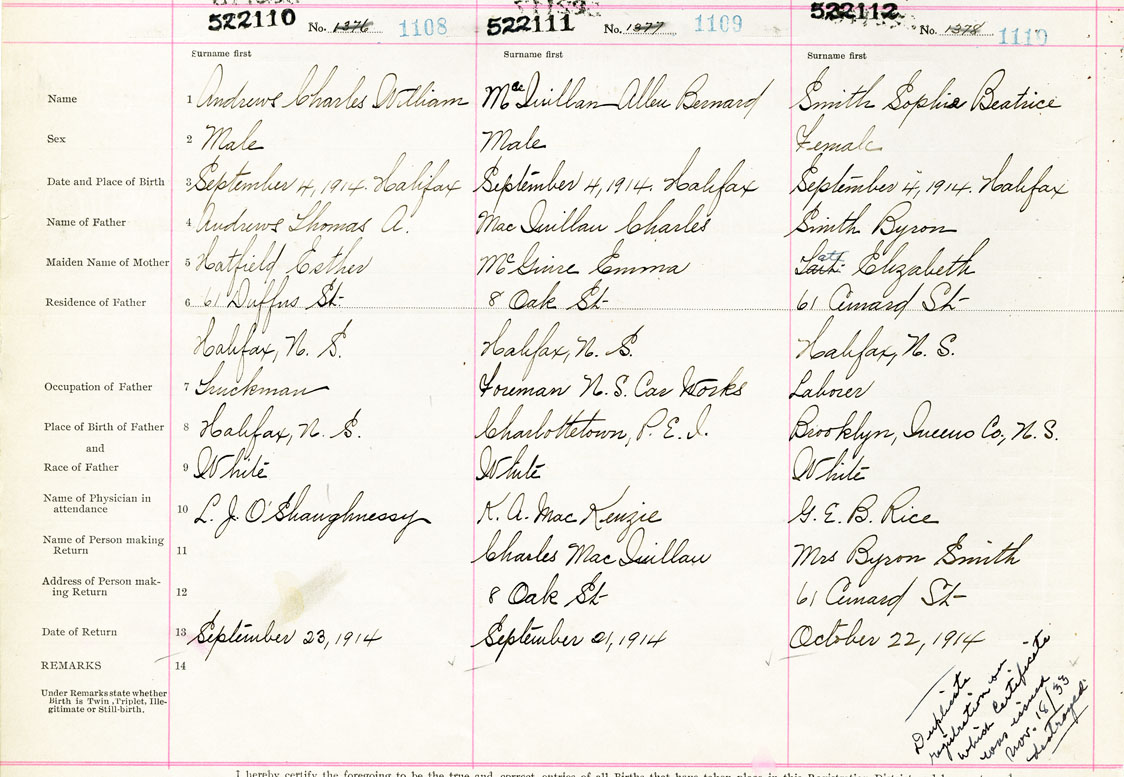 522110 No. 1376 1108 522111 No. 1377 1109 522112 No. 1378 1110
Surname first Surname first Surname first
Name 1 Andrews Charles William McQuillan Allen Bernard Smith Sophia Beatrice
Sex 2 Male Male Female
Date and Place of Birth 3 September 4, 1914. Halifax September 4, 1914. Halifax September 4, 1914. Halifax
Name of Father 4 Andrews Thomas A. MacQuillan Charles Smith Byron
Maiden Name of Mother 5 Hatfield Esther McGuire Emma Elizabeth
Residence of Father 6 61 Duffus St 8 Oak St 61 St
Halifax, N. S. Halifax, N. S. Halifax, N. S.
Occupation of Father 7 Truckman Foreman N. S. Car Works Laborer
Place of Birth of Father 8 Halifax, N. S. Charlottetown, P. E. I. Brooklyn, Queens Co., N. S.
and
Race of Father 9 White White White
Name of Physician in
attendance 10 L. J. O'Shaughnessy K. A. MacKenzie G. E. B. Rice
Name of Person making
Return 11 Charles MacQuillan Mrs Byron Smith
Address of Person mak-
ing Return 12 8 Oak St 61 St
Date of Return 13 September 23, 1914 September 21, 1914 October 22, 1914
REMARKS 14
Under Remarks state whether
Birth is Twin, Triplet, Ille-
gitimate or Still-birth.
Duplicate
registration on
which certificate
was issued
Nov. 18/33
destroyed
I hereby certify the foregoing to be the true and correct entries of all Births that have taken place in this Registration District